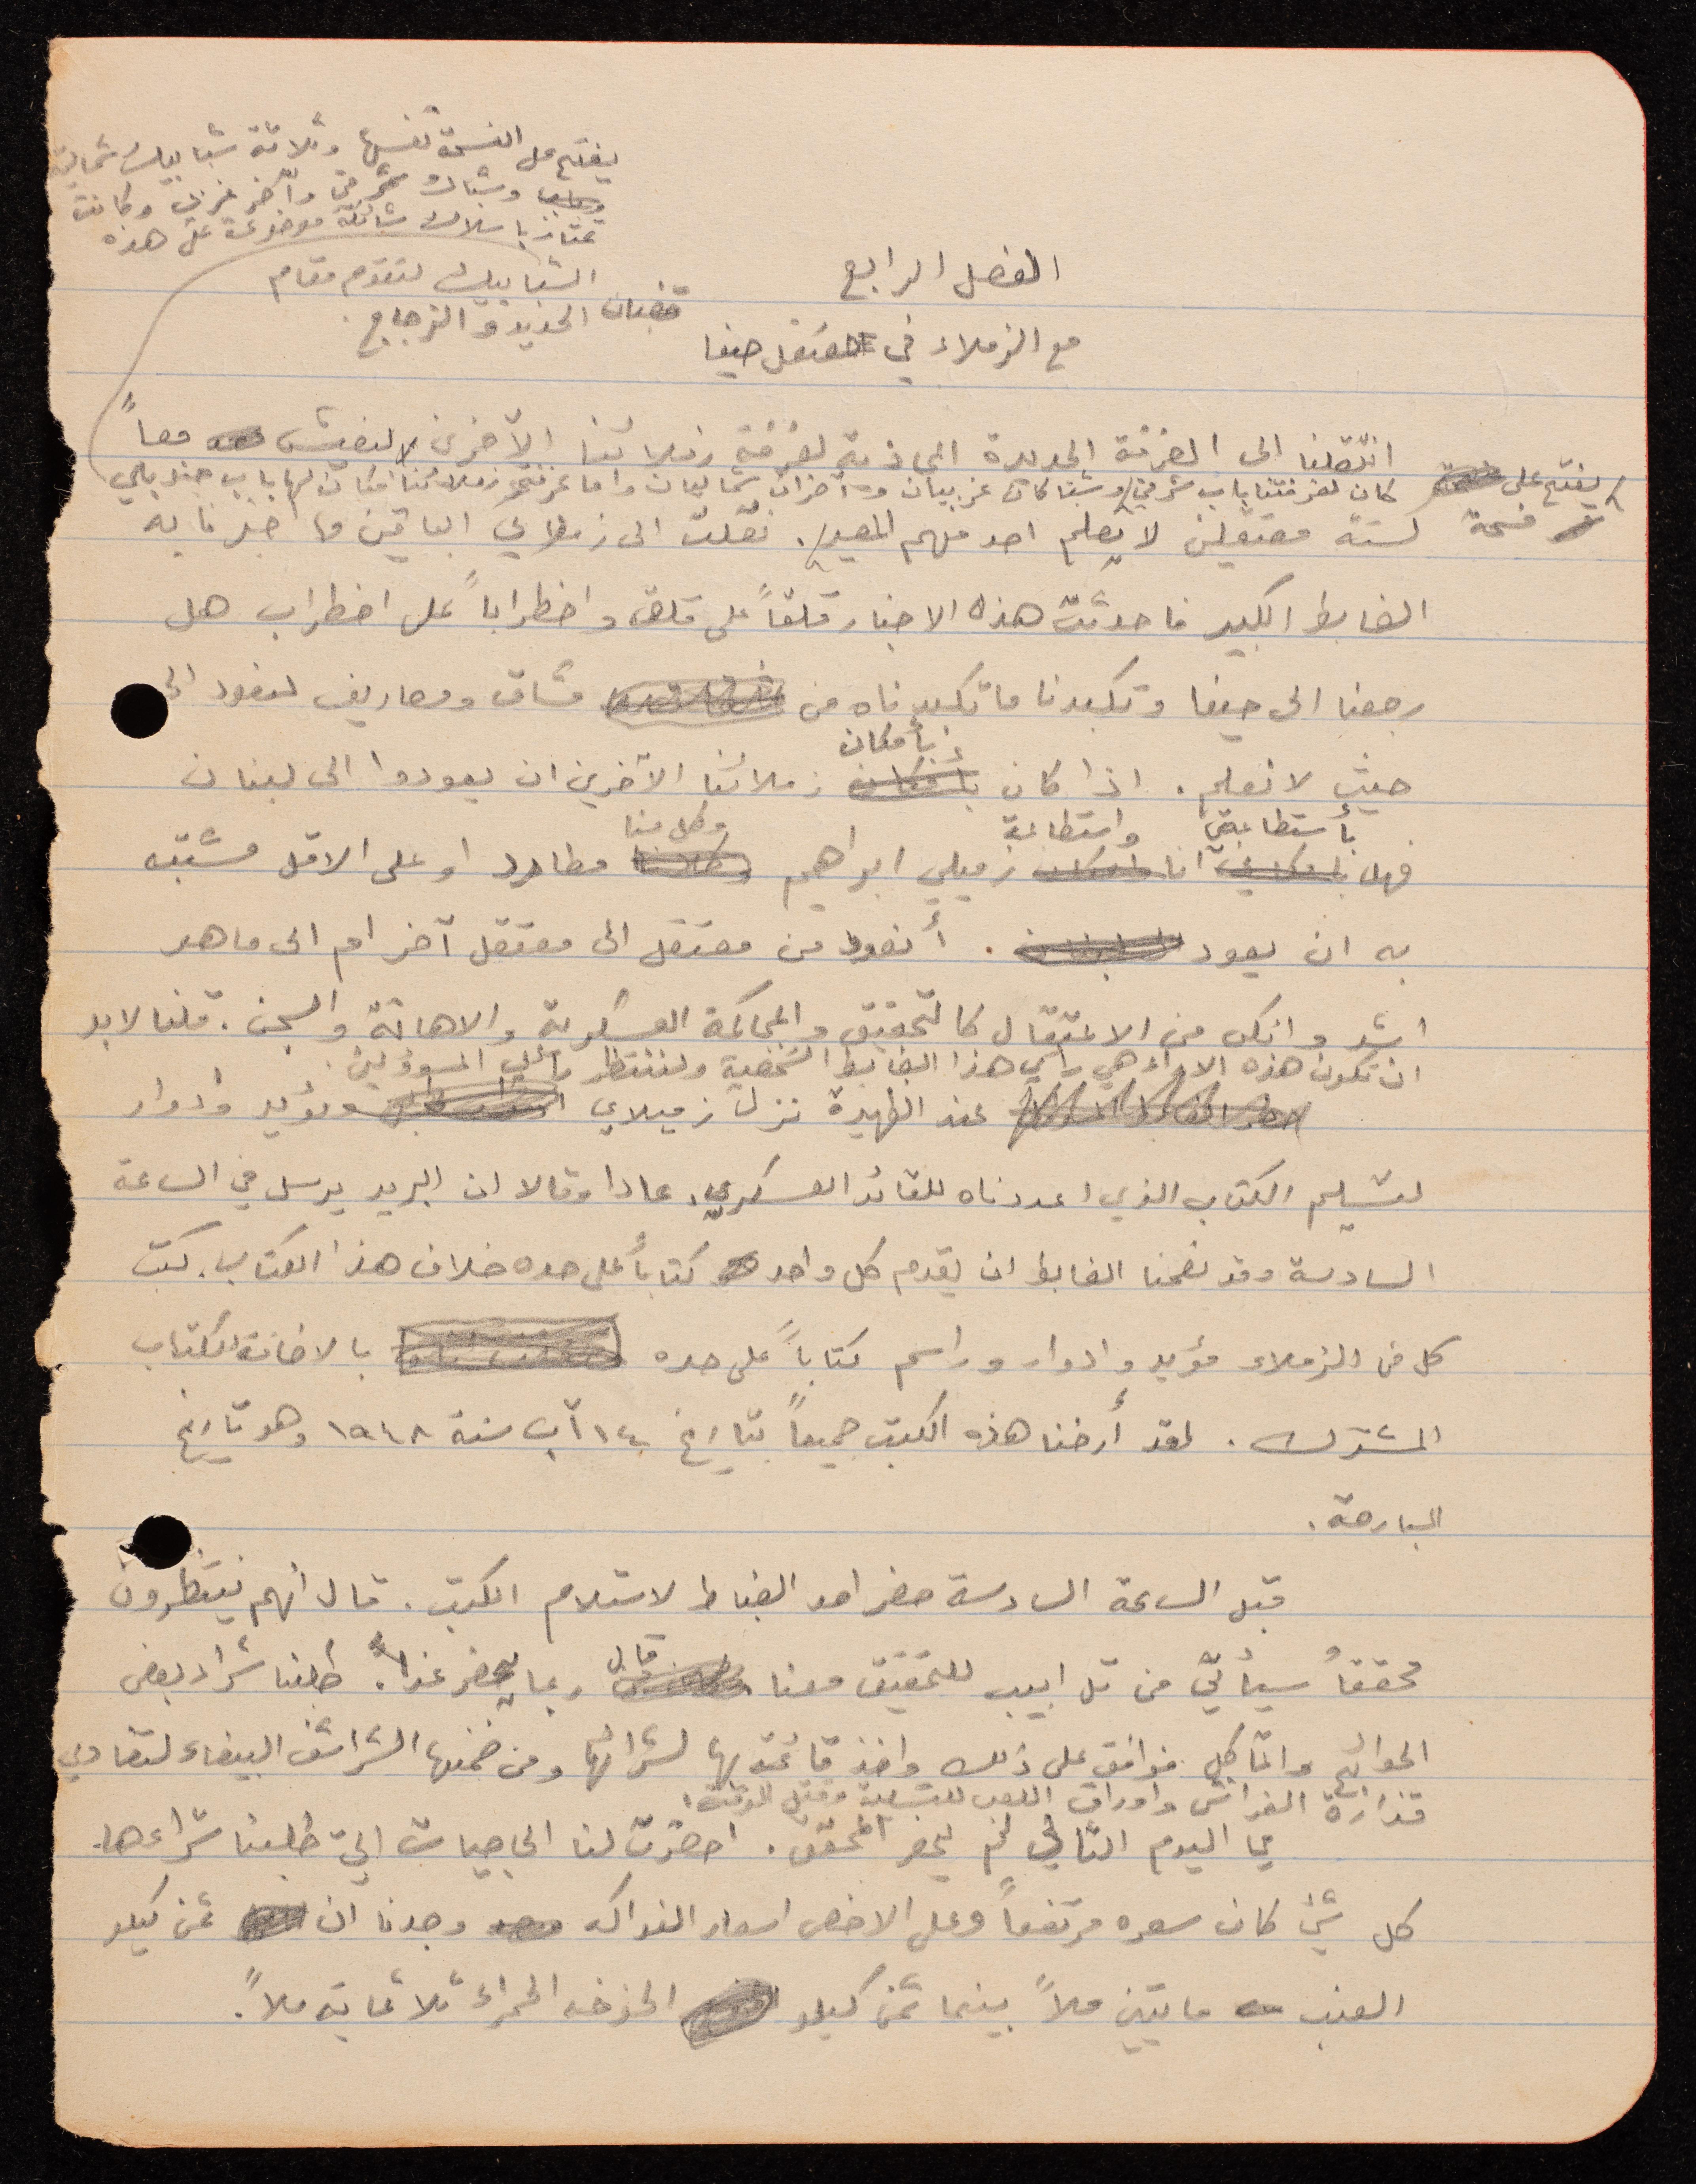 يفتح على الفسحة نفسها وثلاثة شبابيك شمالية
وشباك شرقي وآخر غربي وكانت
تمتاز باسلاك شائكة موضوعة على هذه
الشبابيك لتقوم مقام
قضبان الحديد والزجاج.
الفصل الرابع
مع الزملاء في معتقل حيفا
انتقلنا الى الغرفة الجديدة المحاذية لغرفة زملائنا الآخرين لنعيش معاً
يفتح على فسحة
كان لغرفتنا باب شرقي وشباكان غربيان وآخران شماليان واما غرفة زملائنا فكان لها باب جنوبي
لستة معتقلين لا يعلم احد منهم المصير. نقلت الى زملائي الباقين ما اخبرنا به
الضابط الكبير فاحدثت هذه الاخبار قلقاً على قلق واضطراباً على اضطراب هل
رجعنا الى حيفا وتكبدنا ما تكبدناه من مشاق ومصاريف لنعود الى
حيث لا نعلم. اذا كان بأمكان زملائنا الآخرين ان يعودوا الى لبنان
فهل بأستطاعتي انا واستطاعة زميلي ابراهيم وكل منا مطارد او على الاقل مشتبه
به ان يعود. أنعود من معتقل الى معتقل آخر ام الى ما هو
اشد وانكى من الاعتقال كالتحقيق والمحاكمة العسكرية والاهانة والسجن. قلنا لابد
ان تكون هذه الآراء هي رأي هذا الضابط الشخصية ولننتظر رأي المسؤولين.
عند الظهيرة نزل زميلاي مؤيد وادوار
لتسليم الكتاب الذي اعددناه للقائد العسكري. عادا وقالا ان البريد يرسل في الساعة
السادسة وقد نصحنا الضابط ان يقدم كل واحد كتاباً على حده خلاف هذا الكتاب. كتب
كل من الزملاء مؤيد وادوار وراسم كتاباً على حده بالاضافة للكتاب
المشترك. لقد أرخنا هذه الكتب جميعاً بتاريخ ١٤ آب سنة ١٩٤٨ وهو تاريخ
البارحة.
قبل الساعة السادسة حضر احد الضباط لاستلام الكتب. قال انهم ينتظرون
محققاً سيأتي من تل ابيب للتحقيق معنا قال ربما يحضر غداً. طلبنا شراء بعض
الحوائج والمآكل فوافق على ذلك واخذ قائمة بها لشرائها ومن ضمنها الشراشف البيضاء لتفادي
قذارة الفراش واوراق اللعب للتسلية وقتل الوقت.
في اليوم الثاني لم يحضر المحقق. احضرت لنا الحاجيات التي طلبنا شراءها.
كل شيء كان سعره مرتفعاً وعلى الاخص اسعار الفواكه وجدنا ان ثمن كيلو
العنب مايتين ملاً بينما ثمن كيلو الخوخه الحمراء ثلاثماية ملاً.